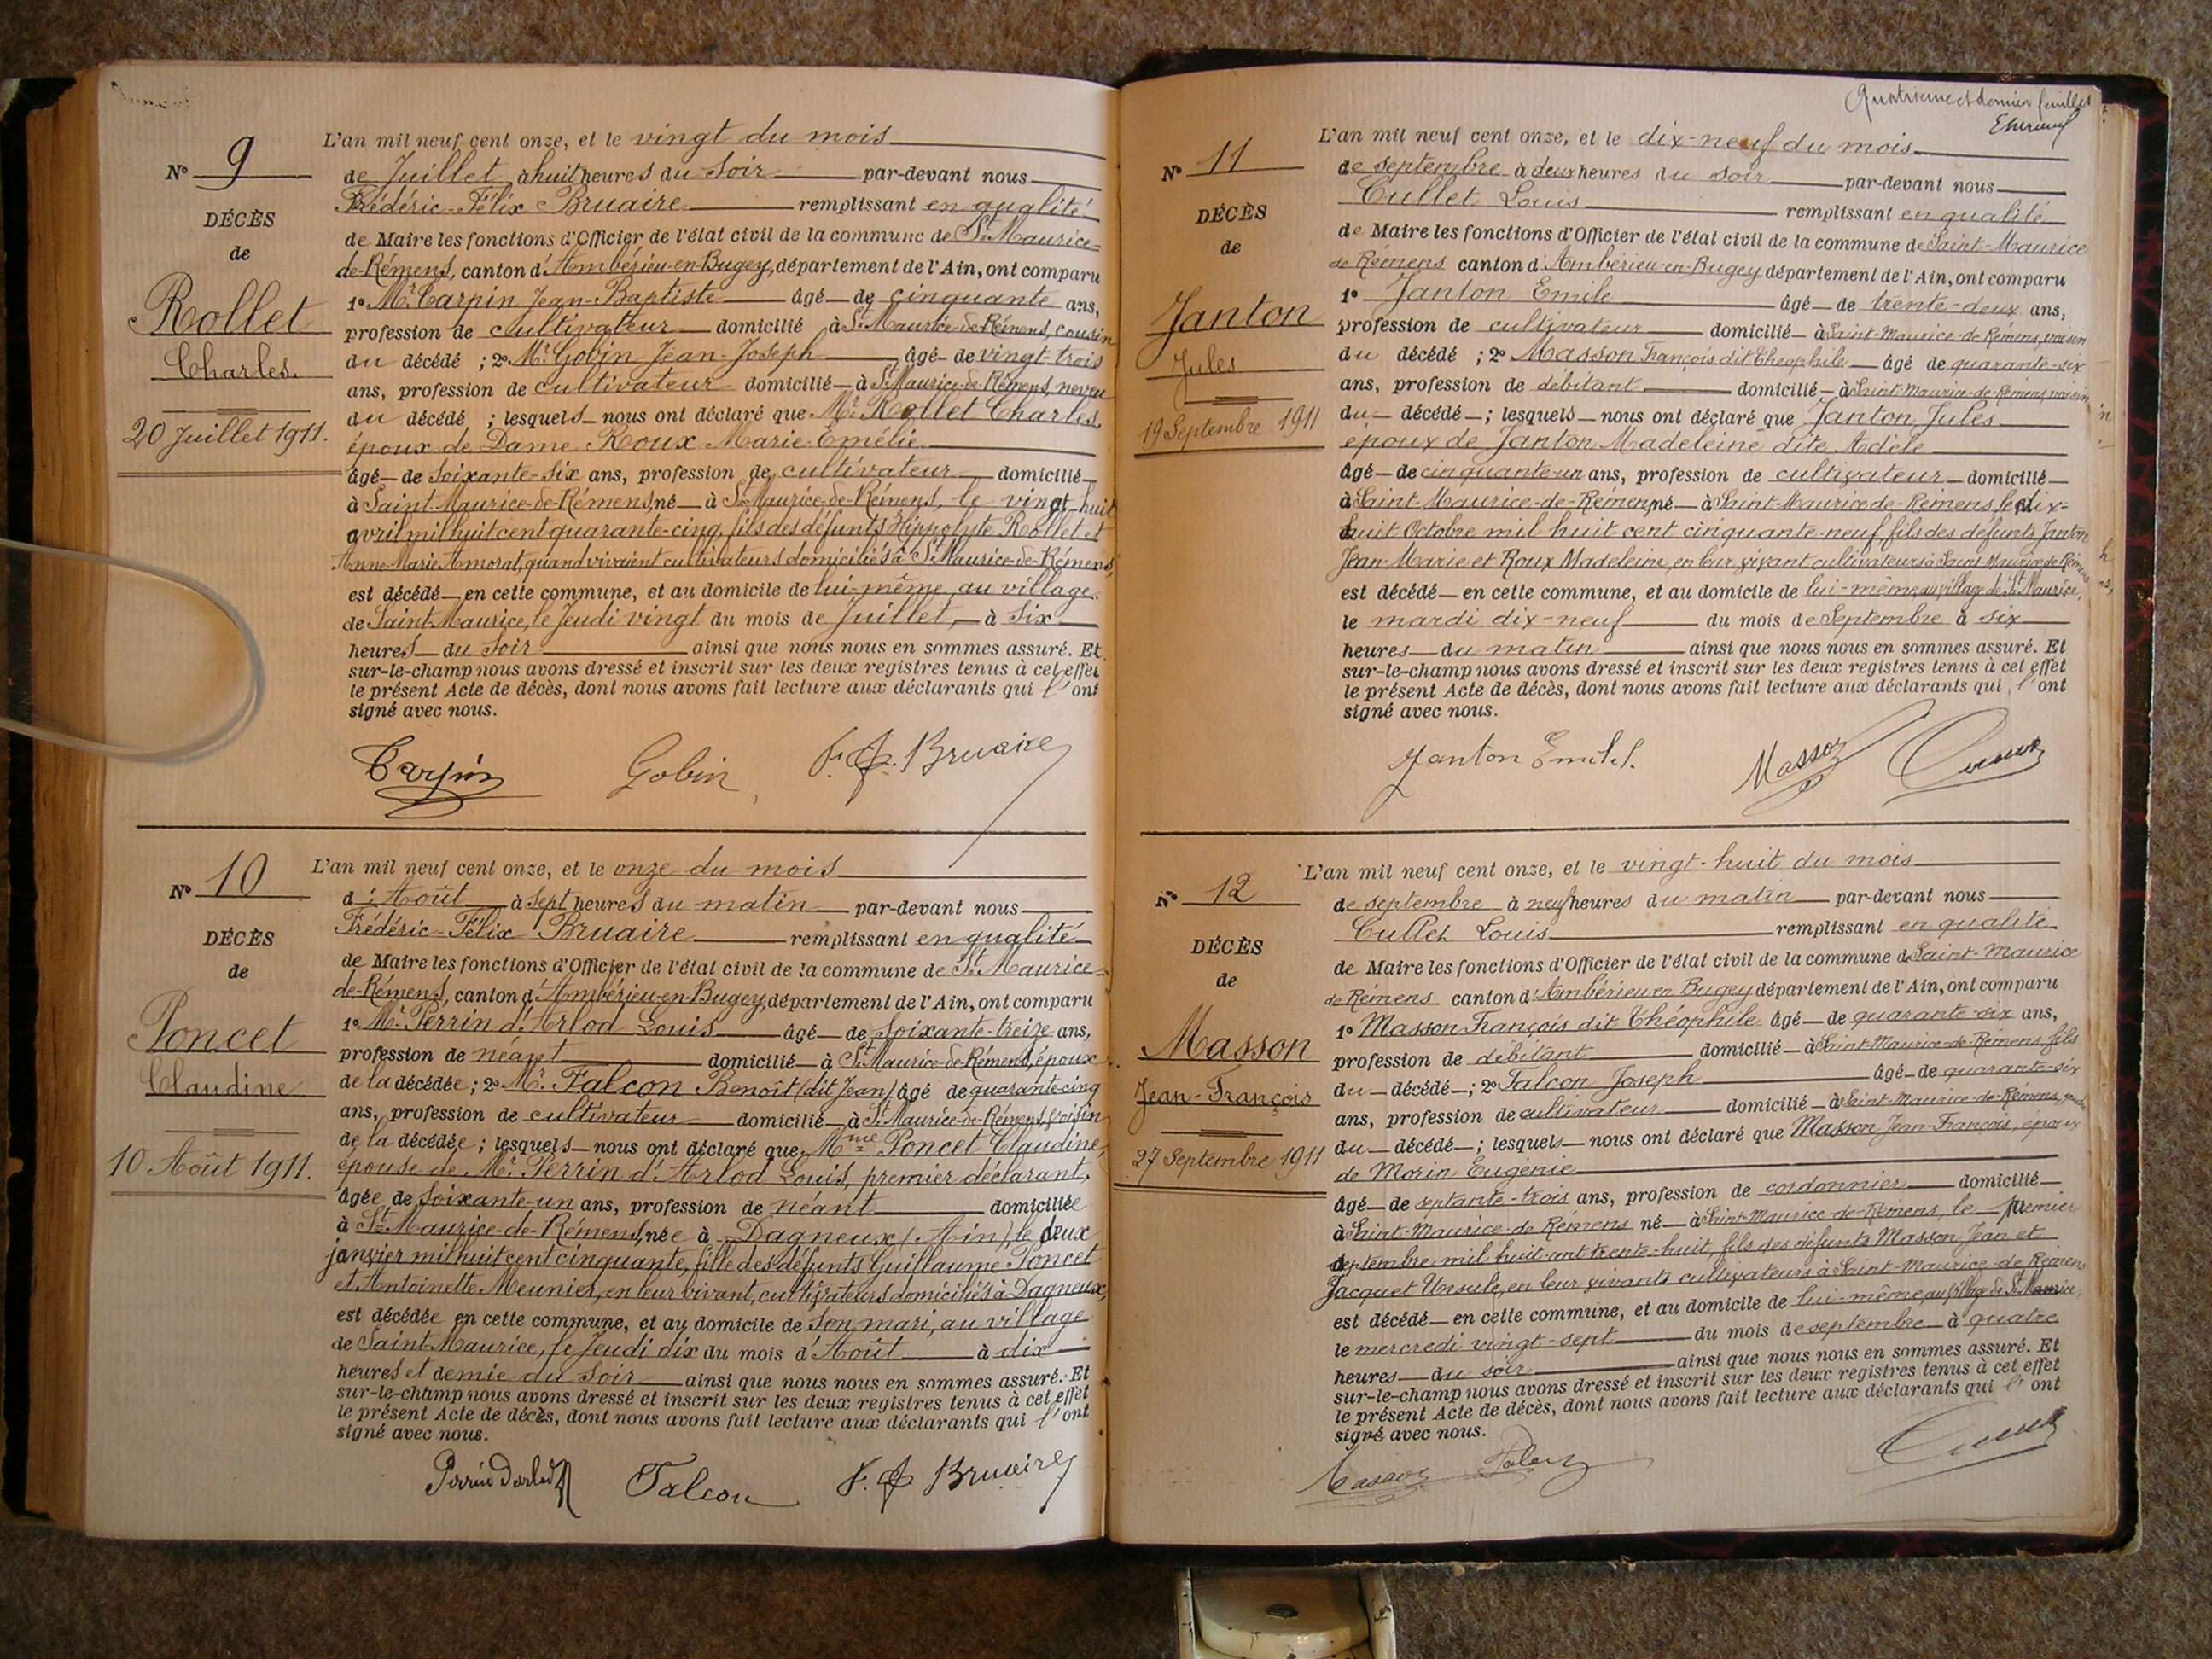 N° 9
DÉCÈS
de
Rollet
Charles.
20 Juillet 1911.
L'an mil neuf cent onze, et le vingt du mois
de Juillet à huit heures du soir par-devant nous
Frédéric-Félix Bruaire remplissant en qualité
de Maire les fonctions d'Officier de l'état civil de la commune de St Maurice-
de-Rémens, canton d'Ambérieu-en-Bugey, département de l'Ain, ont comparu
1° Mr Carpin Jean-Baptiste âgé de cinquante ans,
profession de cultivateur domicilié à St Maurice-de-Rémens, cousin
du décédé ; 2° Mr Gobin Jean-Joseph, âgé de vingt-trois
ans, profession de cultivateur domicilié à St Maurice-de-Rémens, neveu
du décédé ; lesquels nous ont déclaré que Mr Rollet Charles,
époux de Dame Roux Marie-Emélie
âgé de soixante-six ans, profession de cultivateur domicilié
à Saint-Maurice-de-Rémens, né à St Maurice-de-Rémens, le vingt-huit
avril mil huit cent quarante-cinq, fils des défunts Hippolyte Rollet et
Anne-Marie Amorat, quand vivaient cultivateurs domiciliés à St Maurice-de-Rémens,
est décédé en cette commune, et au domicile de lui-même, au village
de Saint-Maurice, le Jeudi vingt du mois de Juillet, à six
heures du soir ainsi que nous nous en sommes assuré. Et
sur-le-champ nous avons dressé et inscrit sur les deux registres tenus à cet effet
le présent Acte de décès, dont nous avons fait lecture aux déclarants qui l'ont
signé avec nous.
Carpin Gobin F. F. Bruaire
N° 10
DÉCÈS
de
Poncet
Claudine
10 Août 1911.
L'an mil neuf cent onze, et le onze du mois
d'Août à sept heures du matin par-devant nous
Frédéric-Félix Bruaire remplissant en qualité
de Maire les fonctions d'Officier de l'état civil de la commune de St Maurice-
de-Rémens, canton d'Ambérieu-en-Bugey, département de l'Ain, ont comparu
1° Mr Perrin d'Arlod Louis âgé de soixante-treize ans,
profession de néant domicilié à St Maurice-de-Rémens, époux
de la décédée ; 2° Mr Falcon Benoît (dit Jean) âgé de quarante-cinq
ans, profession de cultivateur domicilié à St Maurice-de-Rémens, voisin
de la décédée ; lesquels nous ont déclaré que Mme Poncet Claudine,
épouse de Mr Perrin d'Arlod Louis, premier déclarant,
âgée de soixante-un ans, profession de néant domiciliée
à St Maurice-de-Rémens, née à Dagneux (Ain), le deux
janvier mil huit cent cinquante, fille des défunts Guillaume Poncet
et Antoinette Meunier, en leur vivant, cultivateurs domiciliés à Dagneux,
est décédée en cette commune, et au domicile de son mari, au village
de Saint-Maurice, le Jeudi dix du mois d'Août à dix
heures et demie du soir ainsi que nous nous en sommes assuré. Et
sur-le-champ nous avons dressé et inscrit sur les deux registres tenus à cet effet
le présent Acte de décès, dont nous avons fait lecture aux déclarants qui l'ont
signé avec nous.
Perrin Darlod Falcon F. F. Bruaire
Quatrième et dernier feuillet
N° 11
DÉCÈS
de
Janton
Jules
19 Septembre 1911
L'an mil neuf cent onze, et le dix-neuf du mois
de septembre à deux heures du soir par-devant nous
Cullet Louis remplissant en qualité
de Maire les fonctions d'Officier de l'état civil de la commune de Saint-Maurice
de Rémens canton d'Ambérieu-en-Bugey département de l'Ain, ont comparu
1° Janton Emile âgé de trente-deux ans,
profession de cultivateur domicilié à Saint-Maurice-de-Rémens, voisin
du décédé ; 2° Masson François dit Théophile âgé de quarante-six
ans, profession de débitant domicilié à Saint-Maurice-de-Rémens, voisin
du décédé ; lesquels nous ont déclaré que Janton Jules
époux de Janton Madeleine dite Adèle
âgé de cinquante-un ans, profession de cultivateur domicilié
à Saint-Maurice-de-Remens, né à Saint-Maurice de Rémens, le dix-
huit Octobre mil huit cent cinquante-neuf fils des défunts Janton
Jean-Marie et Roux Madeleine, en leur vivant cultivateurs à Saint Maurice de Rémens
est décédé en cette commune, et au domicile de lui-même, au village de St Maurice,
le mardi dix-neuf du mois de Septembre à six
heures du matin ainsi que nous nous en sommes assuré. Et
sur-le-champ nous avons dressé et inscrit sur les deux registres tenus à cet effet
le présent Acte de décès, dont nous avons fait lecture aux déclarants qui l'ont
signé avec nous.
Janton Emile Masson
N° 12
DÉCÈS
de
Masson
Jean-François
27 Septembre 1911
L'an mil neuf cent onze, et le vingt-huit du mois
de septembre à neuf heures du matin par-devant nous
Cullet Louis remplissant en qualité
de Maire les fonctions d'Officier de l'état civil de la commune de Saint-Maurice
de Rémens canton d'Ambérieu en Bugey département de l'Ain, ont comparu
1° Masson François dit Théophile âgé de quarante-six ans,
profession de débitant domicilié à Saint-Maurice-de-Rémens fils
du décédé ; 2° Falcon Joseph âgé de quarante-six
ans, profession de cultivateur domicilié à Saint-Maurice-de-Rémens,
du décédé ; lesquels nous ont déclaré que Masson Jean-François, époux
de Morin Eugénie
âgé de septante-trois ans, profession de cordonnier domicilié
à Saint-Maurice-de Rémens né à Saint-Maurice-de-Rémens, le premier
septembre mil huit-cent trente-huit, fils des défunts Masson Jean et
Jacquet Ursule, en leur vivants cultivateurs à Saint-Maurice-de Remens
est décédé en cette commune, et au domicile de lui-même, au village de St Maurice,
le mercredi vingt-sept du mois de septembre à quatre
heures du soir ainsi que nous nous en sommes assuré. Et
sur-le-champ nous avons dressé et inscrit sur les deux registres tenus à cet effet
le présent Acte de décès, dont nous avons fait lecture aux déclarants qui l'ont
signé avec nous.
Masson Falcon